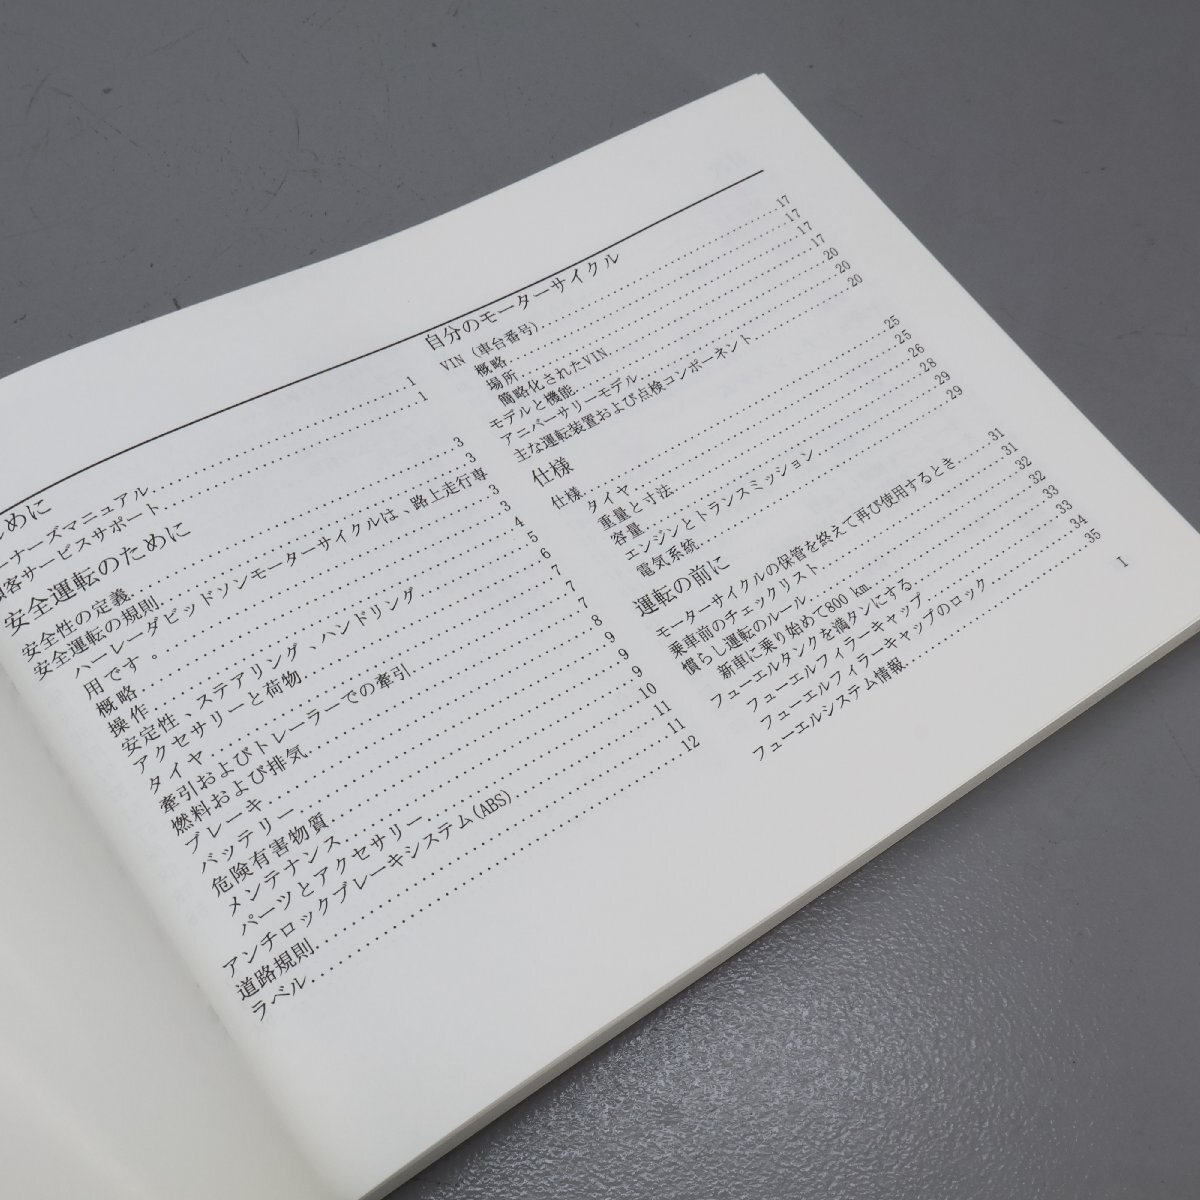 めに
ーナーズマニュアル 1
客サービスサポート 1
安全運転のために
安全性の定義 3
安全運転の規則 3
ハーレーダビッドソンモーターサイクルは、路上走行専
用です。 3
概略 4
操作 5
安定性、ステアリング、ハンドリング 6
アクセサリーと荷物 7
タイヤ 7
牽引およびトレーラーでの牽引 7
燃料および排気 8
ブレーキ 9
バッテリー 9
危険有害物質 9
メンテナンス 10
パーツとアクセサリー 11
アンチロックブレーキシステム(ABS) 11
道路規則
ラベル 12
自分のモーターサイクル
VIN (車台番号) 17
概略 17
場所 17
簡略化されたVIN 20
モデルと機能
アニバーサリーモデル 20
主な運転装置および点検コンポーネント 20
仕様
仕様 25
タイヤ 25
重量と寸法 26
容量 28
エンジンとトランスミッション 29
電気系統 29
運転の前に
モーターサイクルの保管を終えて再び使用するとき 31
乗車前のチェックリスト 31
慣らし運転のルール 32
新車に乗り始めて800 km 32
フューエルタンクを満タンにする 33
フューエルフィラーキャップ 33
フューエルフィラーキャップのロック 34
フューエルシステム情報 35
I